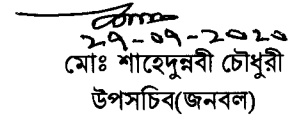 ২৭-০৭-২০২০
মোঃ শাহেদুন্নবী চৌধুরী
উপসচিব(জনবল)